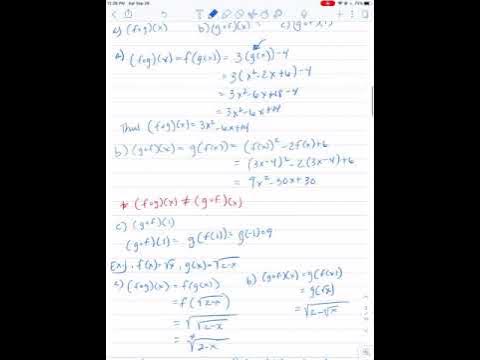 11:28 PM Sat Sep 26
71%
a) (f∘g)(x) b) (g∘f)(x) c) (g∘f)(1)
a) (f∘g)(x) = f(g(x)) = 3(g(x)) - 4
= 3(x²-2x+6) - 4
= 3x²-6x+18-4
= 3x²-6x+14
Thus (f∘g)(x) = 3x²-6x+14
b) (g∘f)(x) = g(f(x)) = (f(x))² - 2f(x)+6
= (3x-4)² - 2(3x-4)+6
= 9x² - 30x + 30
* (f∘g)(x) ≠ (g∘f)(x)
c) (g∘f)(1)
(g∘f)(1) = g(f(1)) = g(-1) = 9
Ex: f(x)=√x, g(x)=√(2-x)
a) (f∘g)(x) = f(g(x)) b) (g∘f)(x) = g(f(x))
= f(√(2-x)) = g(√x)
= √(√(2-x)) = √(2-√x)
= ⁴√(2-x)